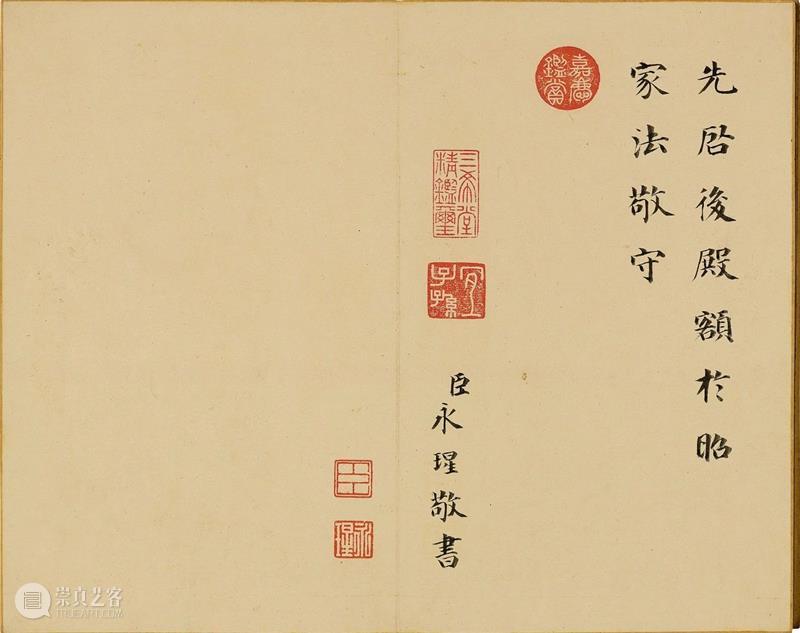 先启後殿額於昭
家法敬守
嘉慶鑑賞
三希堂精鑑璽
宜子孫
臣永瑆敬書
臣
永瑆
崇真艺客